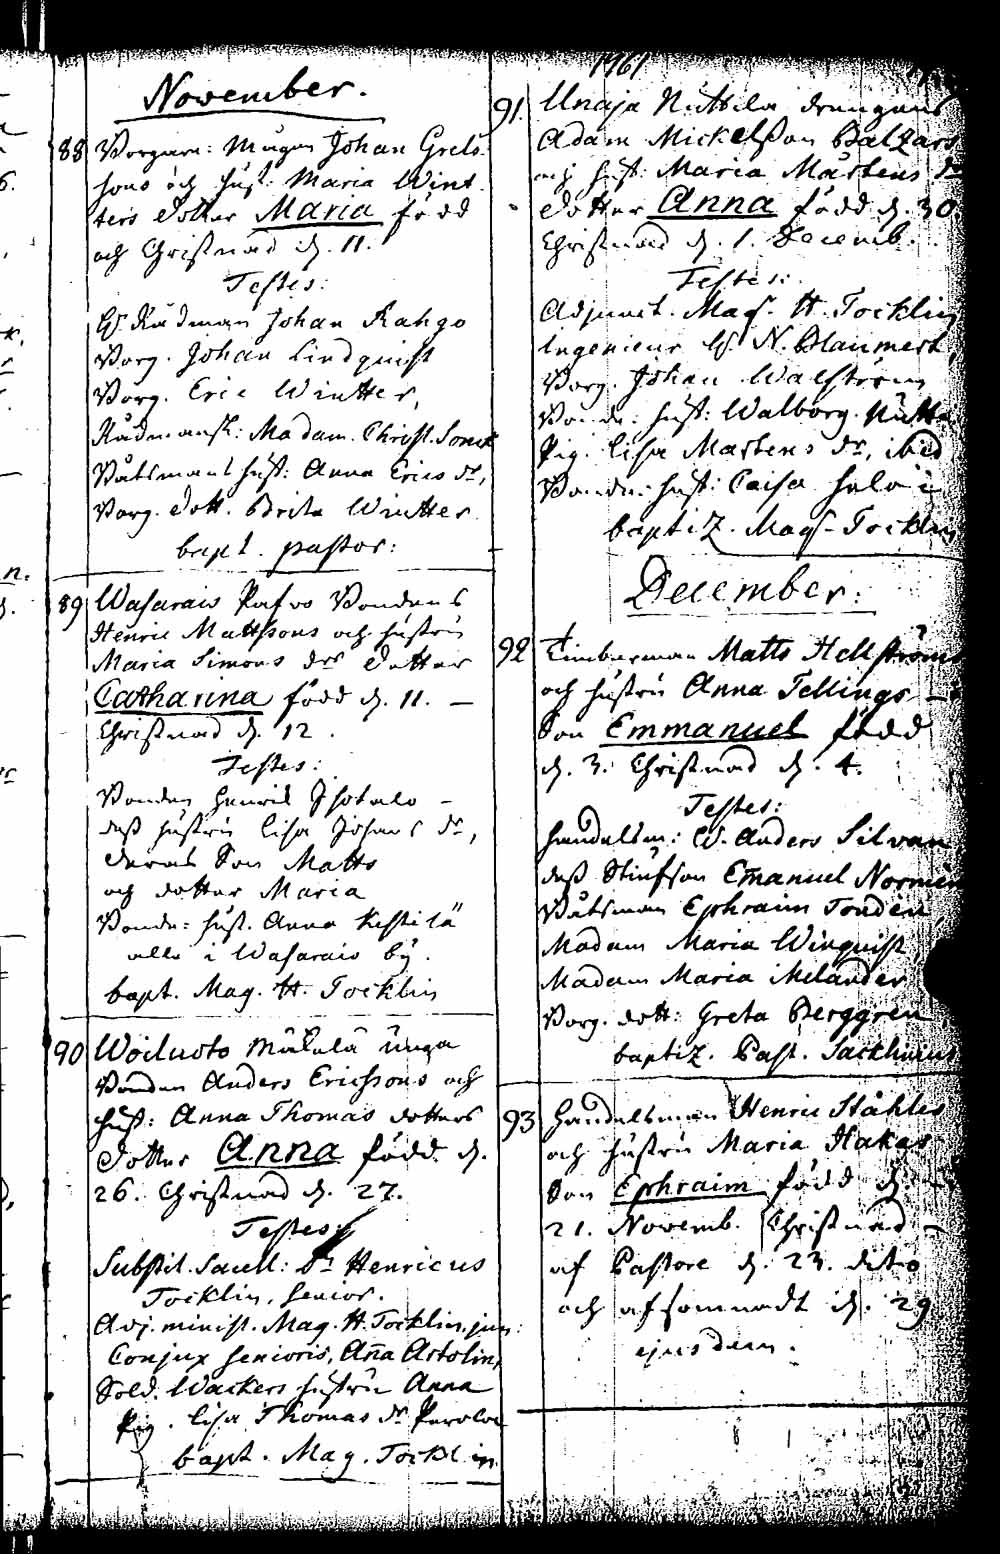 November.
88 Borgaren: Mågen Johan Grels
sons och hust: Maria Wint
ters dotter Maria född
och Christnad d. 11.
Testes:
H. Rådman Johan Rahgo
Borg. Johan Lindquist
Borg. Eric Wintter,
Rådmansk: Madam. Christ. Sonck
Båtsmans hust: Anna Erics dr,
Borg. dott. Brita Wintter
bapt. pastor:
89 Wasarais Pafvo Bondens
Henric Mattssons och hustru
Maria Simons drs dotter
Catharina född d. 11. –
Christnad d. 12.
Testes:
Bonden Henrich Isotalo –
dess hustru Lisa Johans dr,
deras Son Matts
och dotter Maria
Bonde: hust. Anna Kestilä
alla i Wasarais by.
bapt. Mag. H. Tocklin
90 Woiluoto Mäkelä unga
Bonden Anders Ericssons och
hust: Anna Thomas dotters
dotter Anna född d.
26. Christnad d. 27.
Testes:
Substit. Sacell: Dr Henricus
Tocklin, Senior.
Adj. minist. Mag. H. Tocklin, jun:
Conjux Senioris, Aña Artolin,
Sold. Wackers hustru Anna
Pig. Lisa Thomas dr
bapt. Mag. Tocklin
1761
91. Unaja Nuttila drengens
Adam Mickelsson Balzars
och hust: Maria Mårtens dr
dotter Anna född d. 30
Christnad d. 1. Decemb.
Testes:
Adjunct. Mag. H. Tocklin
Ingenieur H. N.
Borg. Johan Walström
Bonde: hust: Walborg
Pig. Lisa Martens dr, ibid
Bonde: hust: Caisa
baptiz. Mag. Tocklin
December:
92 Timberman Matts Hellströms
och hustru Anna Tellings –
Son Emmanuel född
d. 3. Christnad d. 4.
Testes:
Handelsm: H. Anders Silvan
dess Stiufson Emanuel Normén
Båtsman Ephraim Tondin,
Madam Maria Winquist,
Madam Maria Melander
Borg. dott: Greta Berggren,
baptiz. Past. Sacklinius
93 Handelsman Henric Ståhles
och hustru Maria Hakas
Son Ephraim född d. –
21. Novemb. Christnad –
af Pastore d. 23. dito
och afsomnadt d. 29
ejusdem.